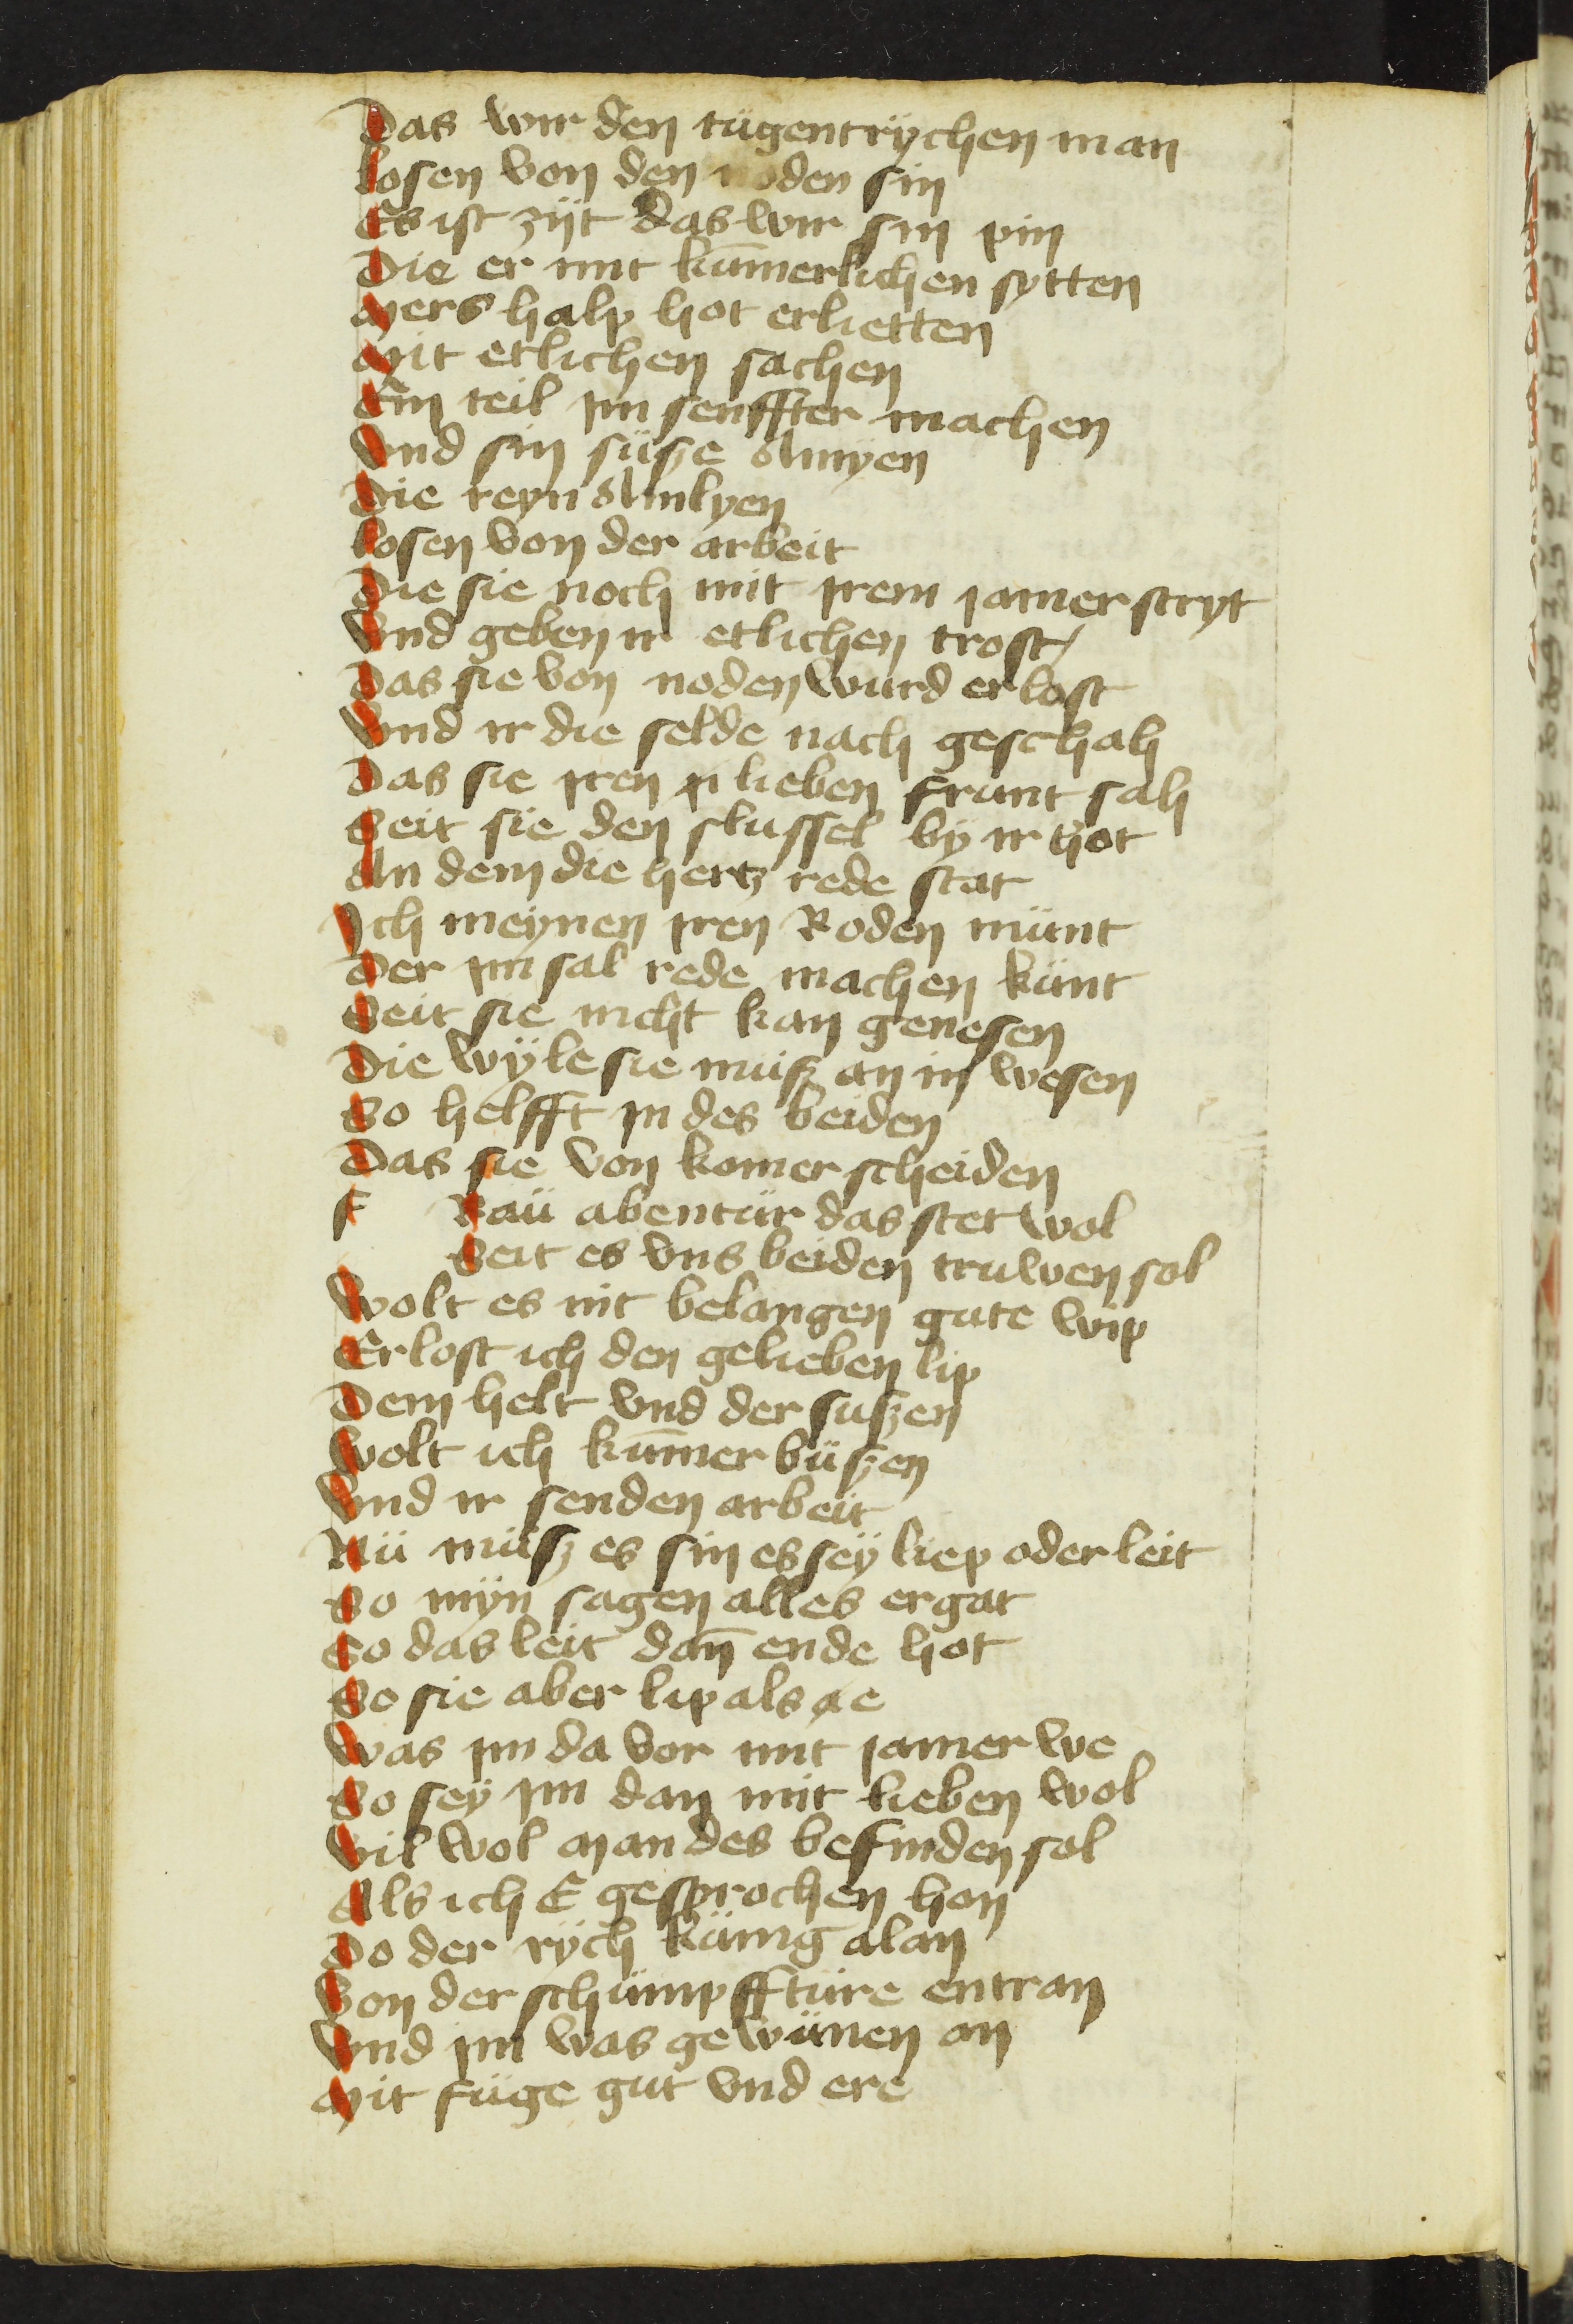 Das wir den tügentrÿchen man
Losen von den noden sin
Es ist zijt das wir sin pin
Die er mit kūmerlichen sytten
Mers halp hot erlietten
Mit etlichen sachen
Ein teil ym senffter machen
Vnd sin süsze Amÿen
Die reyn Amlyen
Losen von der arbeit
Die sie noch mit yrem jamer stryt
Vnd geben ir etlichen trost
Das sie von noden wurd erlost
Vnd ir die selde nach geschah
Das sie yren lieben frunt sah
Seit sie den slussel bÿ ir hot
An dem die hertz rede stat
Ich meÿnen yren Roden münt
Der ym sal rede machen künt
Seit sie nicht kan genesen
Die wÿle sie müsz an in wesen
So helfft yn des beiden
Das sie von komer scheiden
f Raü abentür das stet wol
Seit es vns beiden truwen sol
Wolt es nit belangen gute wip
Erlost ich den gelieben lip
Dem helt vnd der suszen
Wolt ich kūmer büszen
Vnd ir senden arbeit
Nü müsz es sin es seÿ liep oder leit
So mÿn sagen alles ergat
So das leit dan̄ ende hot
So sie aber lip als ae
Was ym da vor mit jamer we
So seÿ ym dan mit lieben wol
Vil wol man des befinden sol
Als ich E gesprochen hon
Do der rÿch künig alan
Von der schümpfftüre entran
Vnd ym was gewünen an
Mit füge gut vnd ere